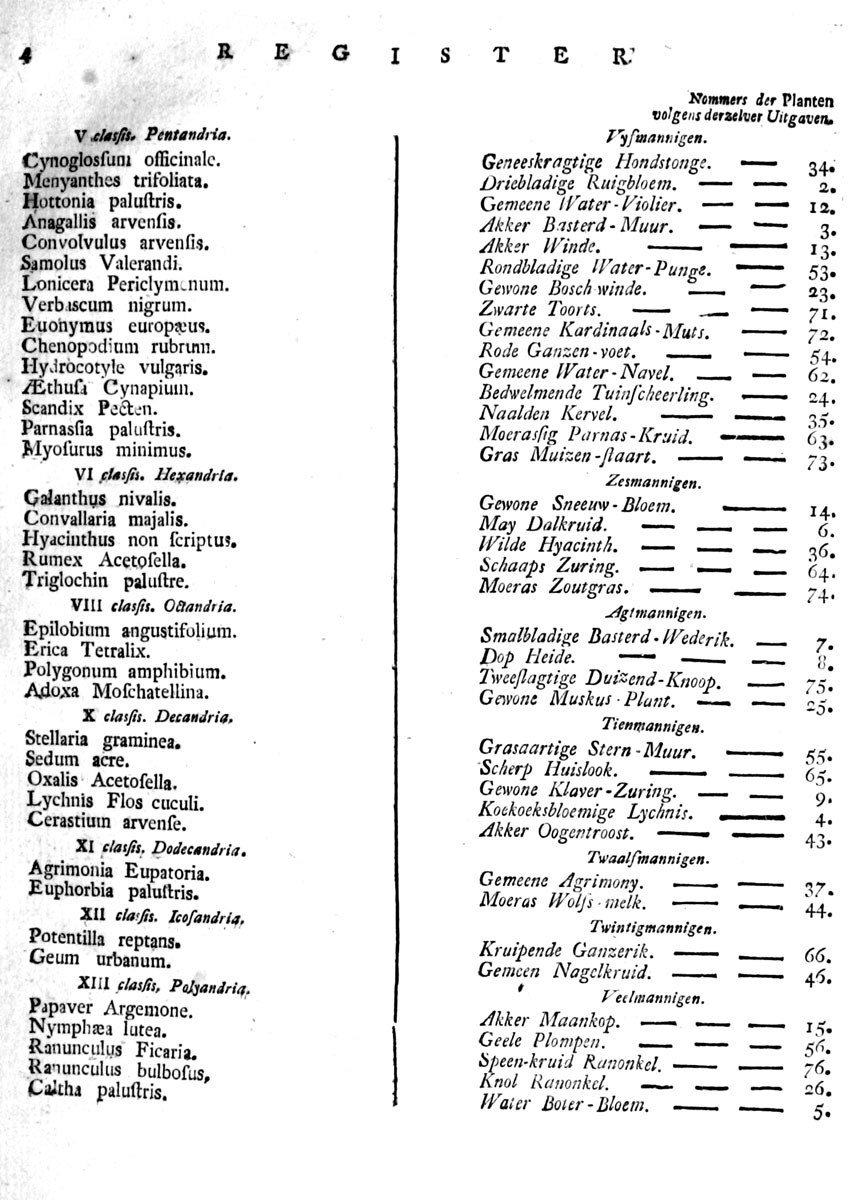 4 REGISTER
Nommers der Planten
volgens derzelver Uitgaven.
V claſſis. Pentandria.
Cynogloſſum officinale.
Menyanthes trifoliata.
Hottonia paluſtris.
Anagallis arvenſis.
Convolvulus arvenſis.
Samolus Valerandi.
Lonicera Periclymenum.
Verbascum nigrum.
Euonymus europæus.
Chenopodium rubrum.
Hydrocotyle vulgaris.
Æthuſa Cynapium.
Scandix Pecten.
Parnaſſia paluſtris.
Myoſurus minimus.
VI claſſis. Hexandria.
Galanthus nivalis.
Convallaria majalis.
Hyacinthus non ſcriptus.
Rumex Acetoſella.
Triglochin paluſtre.
VIII claſſis. Octandria.
Epilobium anguſtifolium.
Erica Tetralix.
Polygonum amphibium.
Adoxa Moſchatellina.
X claſſis. Decandria.
Stellaria graminea.
Sedum acre.
Oxalis Acetoſella.
Lychnis Flos cuculi.
Ceraſtium arvenſe.
XI claſſis. Dodecandria.
Agrimonia Eupatoria.
Euphorbia paluſtris.
XII claſſis. Icoſandria.
Potentilla reptans.
Geum urbanum.
XIII claſſis. Polyandria.
Papaver Argemone.
Nymphæa lutea.
Ranunculus Ficaria.
Ranunculus bulboſus.
Caltha paluſtris.
Vyſmannigen.
Geneeskragtige Hondstonge. — 34.
Driebladige Ruigbloem. — — 2.
Gemeene Water-Violier. — — 12.
Akker Basterd-Muur. — — 3.
Akker Winde. — — 13.
Rondbladige Water-Punge. — 53.
Gewone Bosch winde. — — 23.
Zwarte Toorts. — — — 71.
Gemeene Kardinaals-Muts. — 72.
Rode Ganzen-voet. — — 54.
Gemeene Water-Navel. — — 62.
Bedwelmende Tuinſcheerling. — 24.
Naalden Kervel. — — 35.
Moeraſſig Parnas-Kruid. — 63.
Gras Muizen-ſtaart. — — 73.
Zesmannigen.
Gewone Sneeuw-Bloem. — 14.
May Dalkruid. — — — 6.
Wilde Hyacinth. — — — 36.
Schaaps Zuring. — — — 64.
Moeras Zoutgras. — — 74.
Agtmannigen.
Smalbladige Basterd-Wederik. — 7.
Dop Heide. — — — 8.
Tweeſlagtige Duizend-Knoop. — 75.
Gewone Muskus-Plant. — — 25.
Tienmannigen.
Grasaartige Stern-Muur. — 55.
Scherp Huislook. — — 65.
Gewone Klaver-Zuring. — — 9.
Koekoeksbloemige Lychnis. — 4.
Akker Oogentroost. — — 43.
Twaalfmannigen.
Gemeene Agrimony. — — 37.
Moeras Wolfs-melk. — — 44.
Twintigmannigen.
Kruipende Ganzerik. — — 66.
Gemeen Nagelkruid. — — 46.
Veelmannigen.
Akker Maankop. — — — 15.
Geele Plompen. — — — 56.
Speen-kruid Ranonkel. — — 76.
Knol Ranonkel. — — — 26.
Water Boter-Bloem. — — 5.